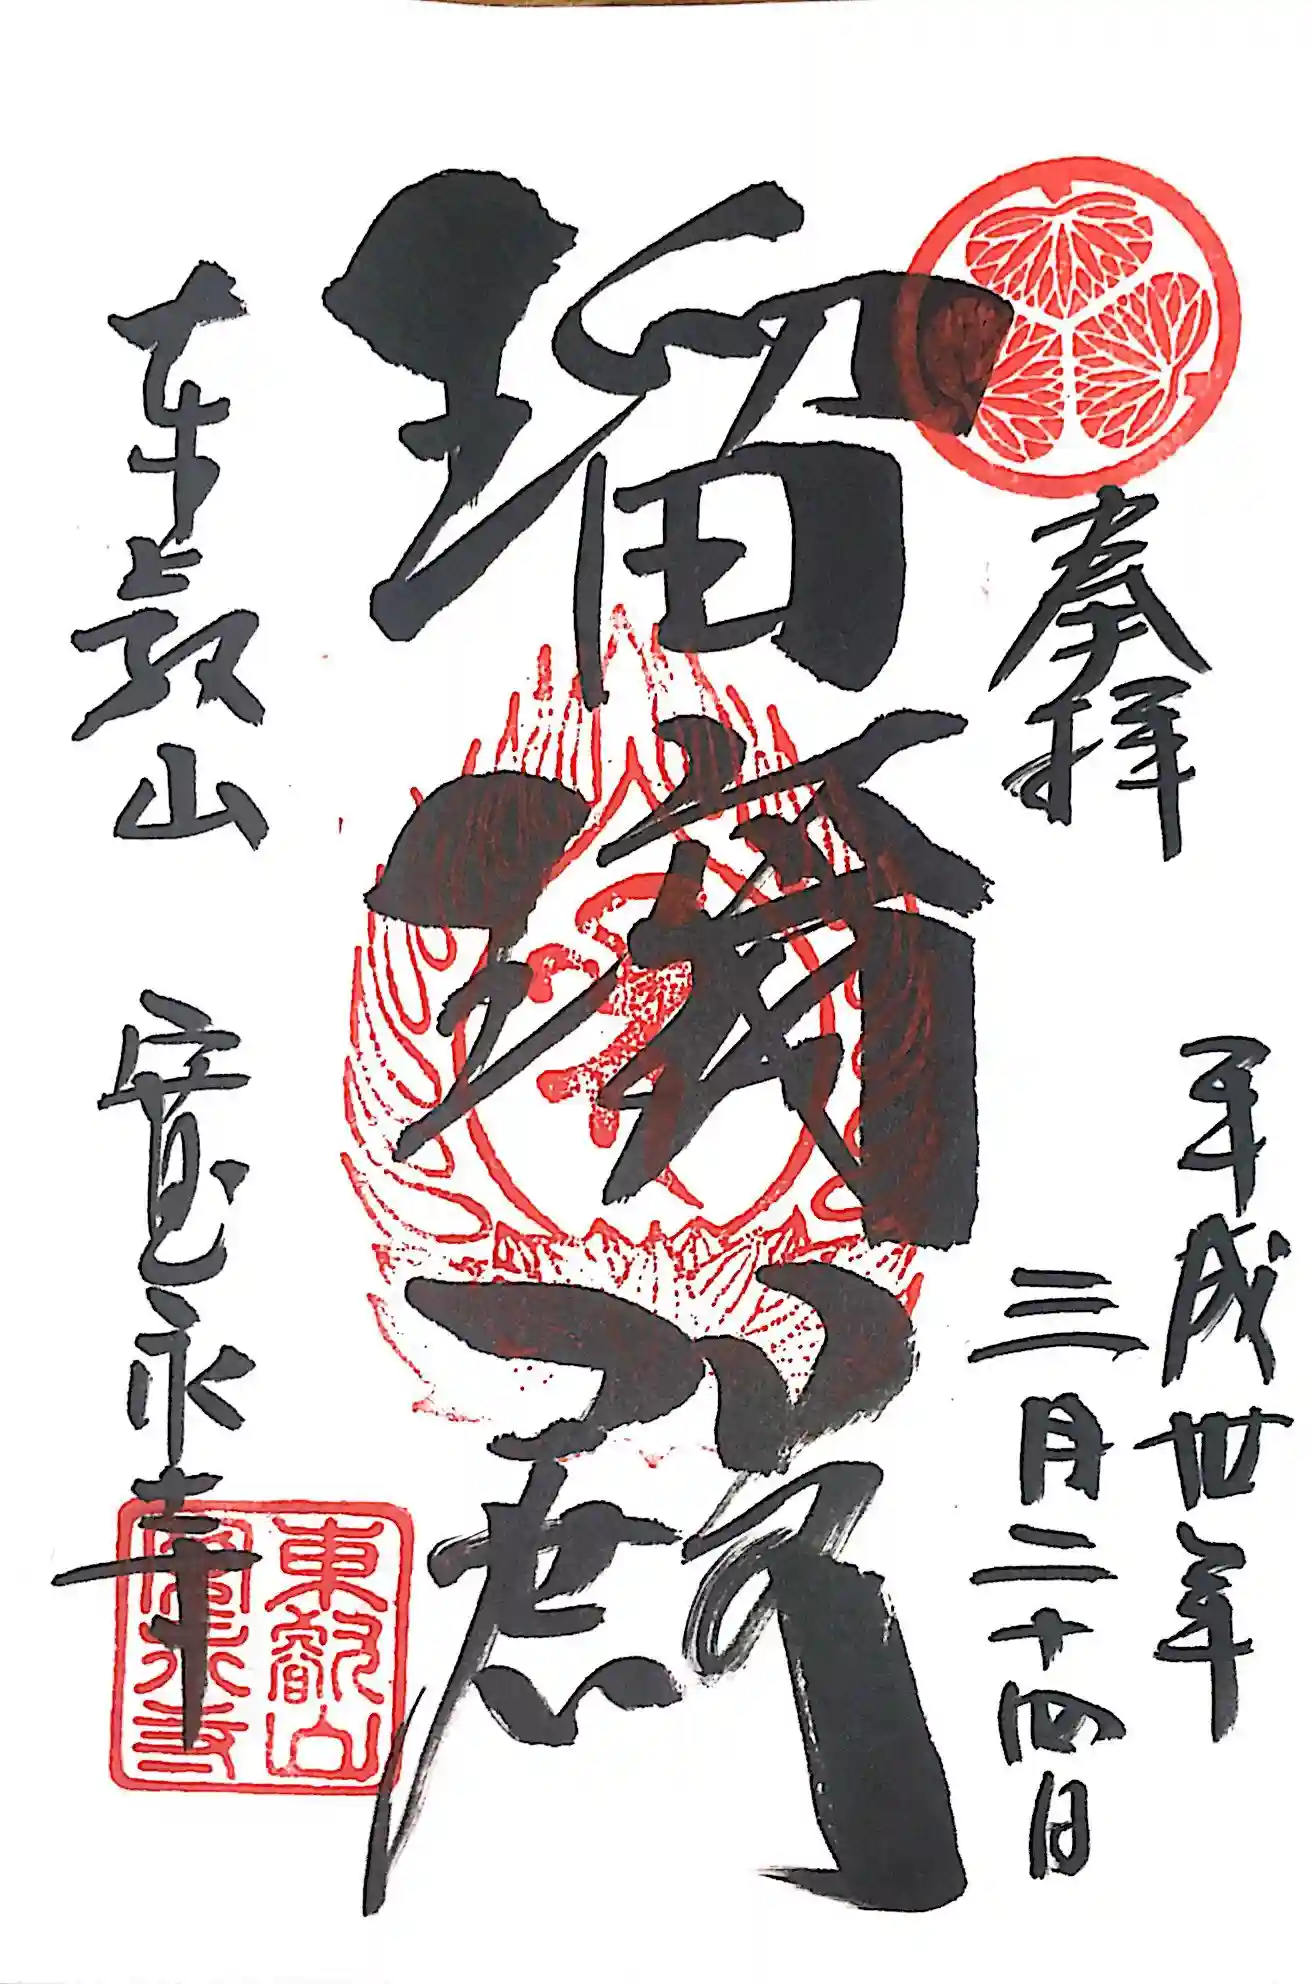 奉拝
平成卅年
三月二十四日
瑠璃殿
東叡山 寛永寺
東叡山
寛永寺